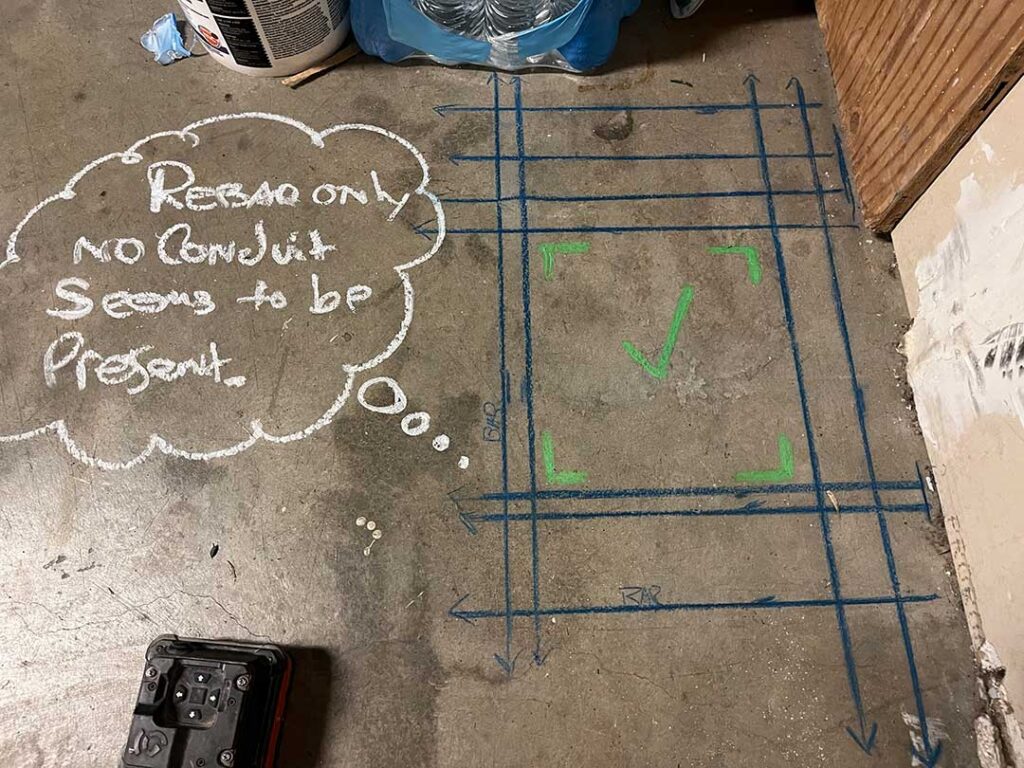 REBAR ONLY
NO CONDUIT
SEEMS to be
Present.
BAR
BAR